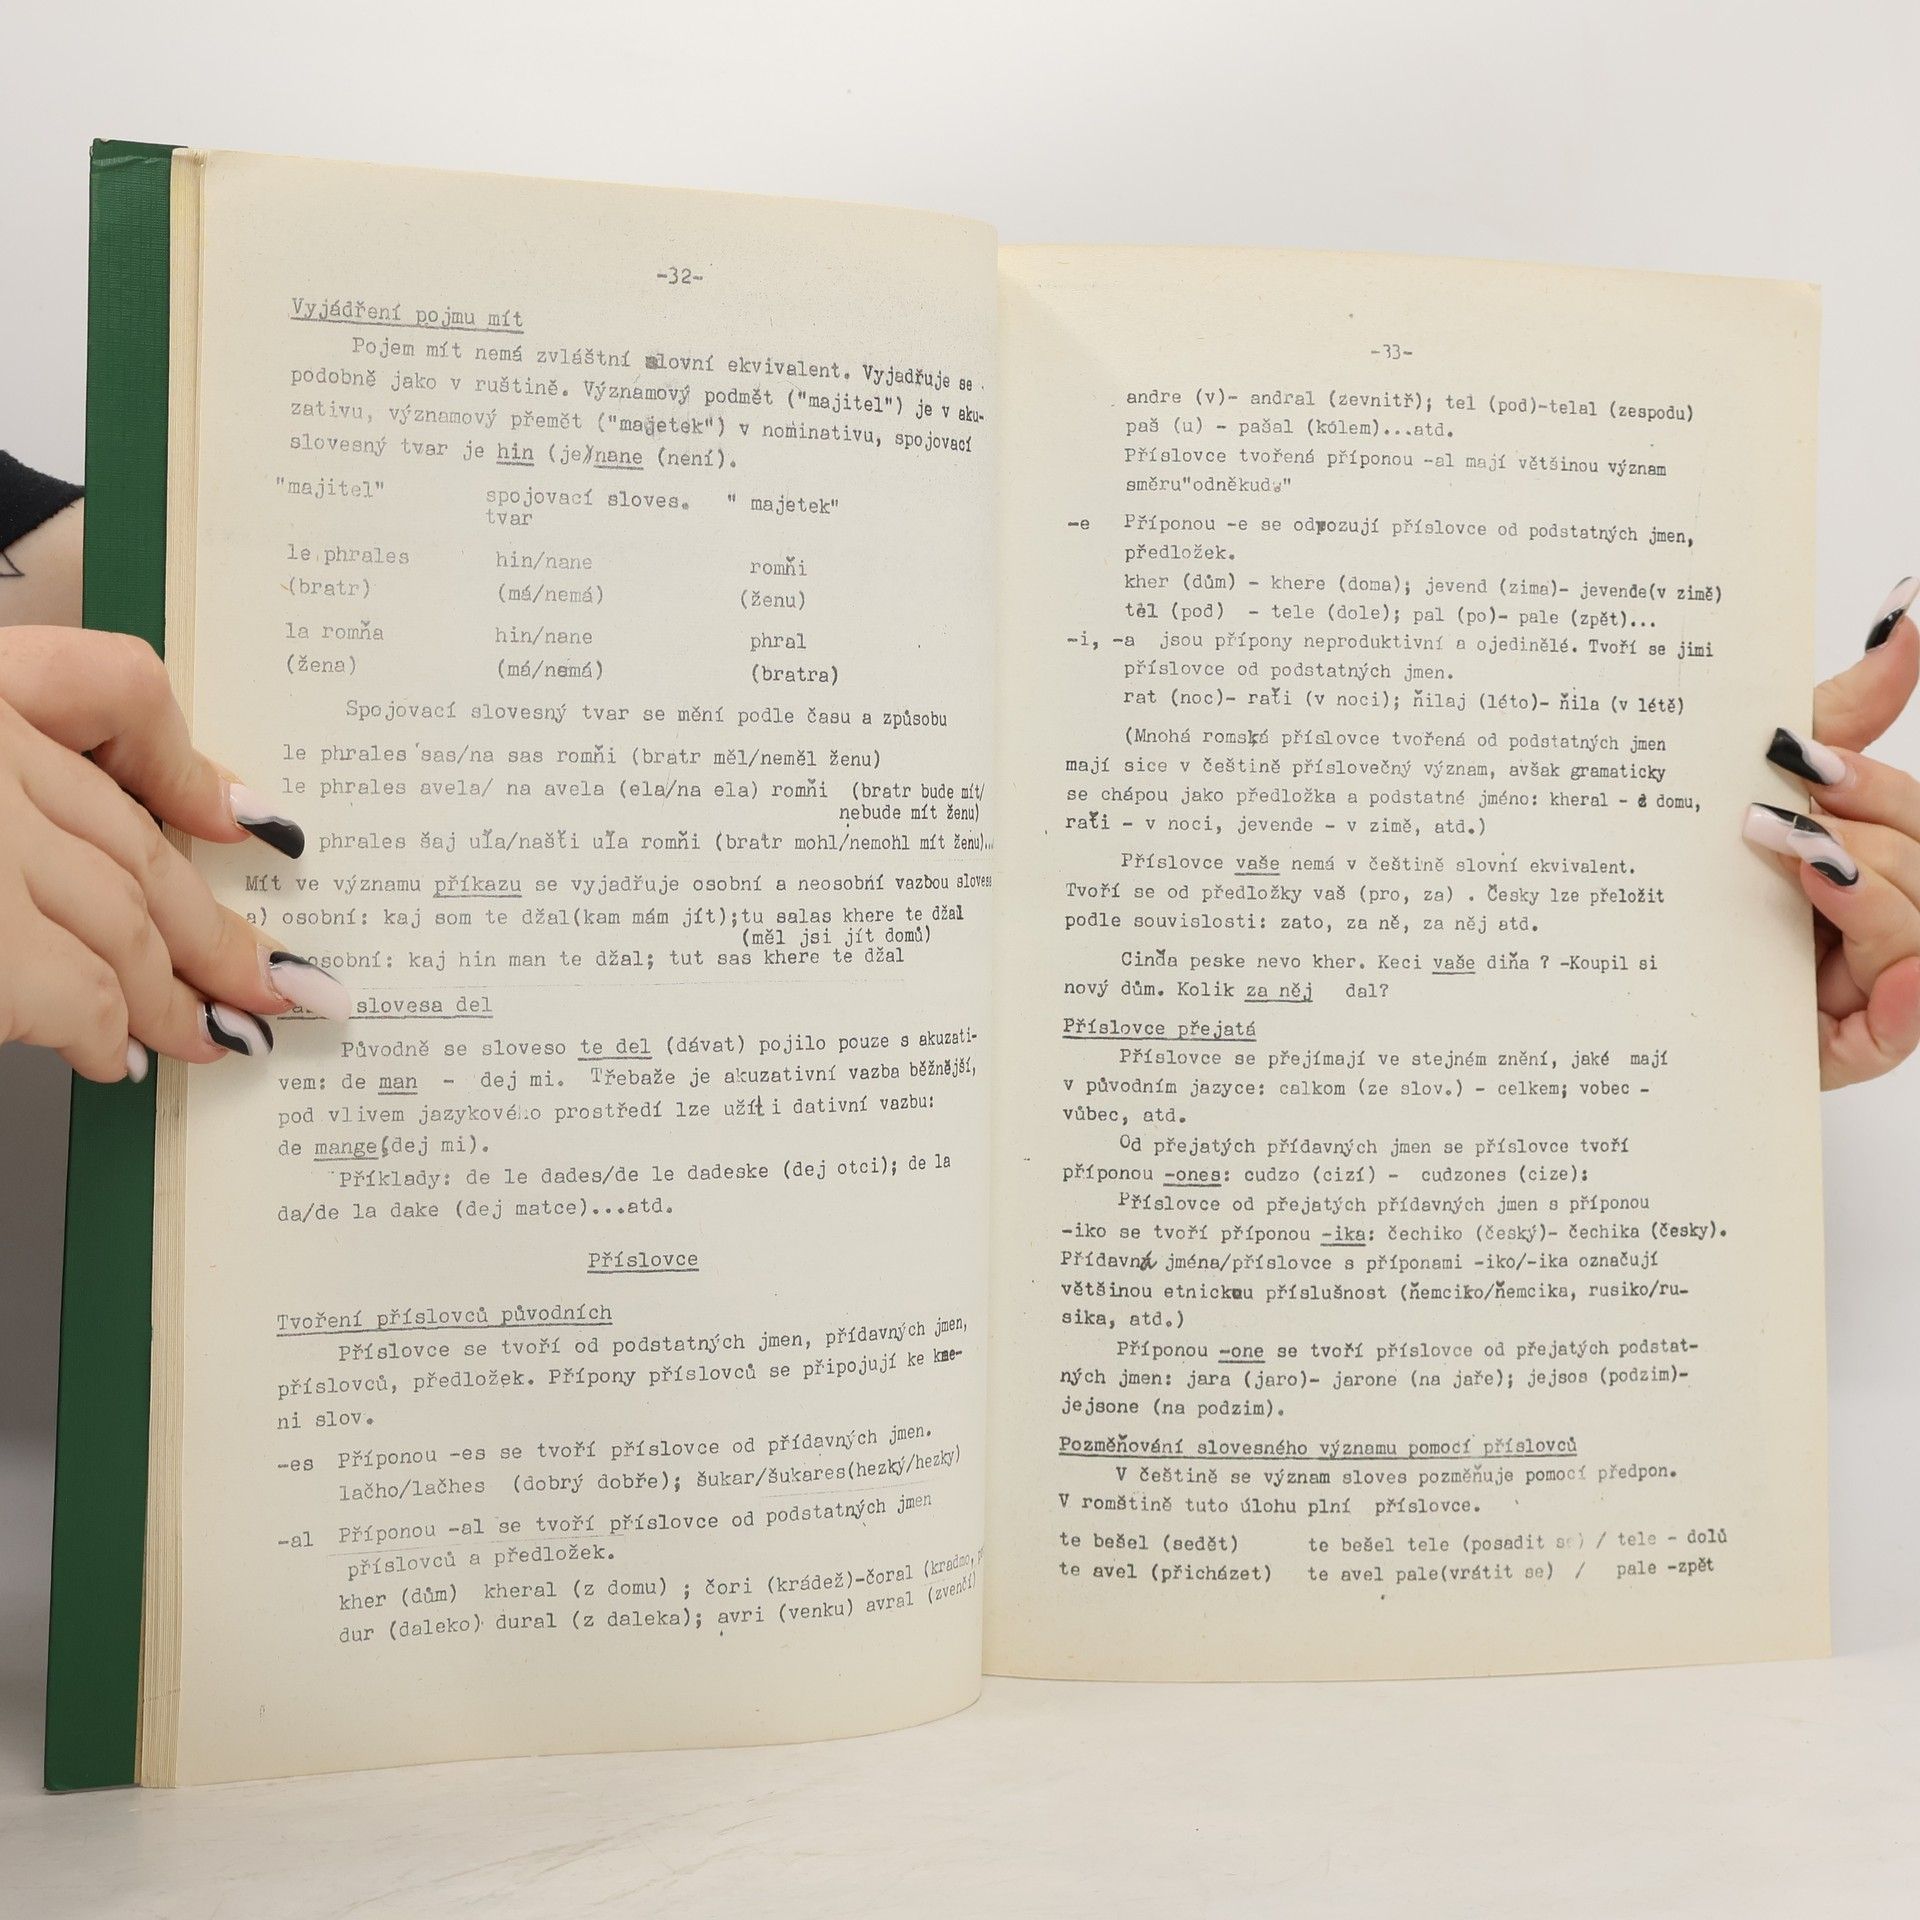 -32-
Vyjádření pojmu mít
Pojem mít nemá zvláštní slovní ekvivalent. Vyjadřuje se
podobně jako v ruštině. Významový podmět ("majitel") je v aku-
zativu, významový přemět ("majetek") v nominativu, spojovací
slovesný tvar je hin (je)/nane (není).
"majitel" spojovací sloves. " majetek"
tvar
le phrales hin/nane romňi
(bratr) (má/nemá) (ženu)
la romňa hin/nane phral
(žena) (má/nemá) (bratra)
Spojovací slovesný tvar se mění podle času a způsobu
le phrales sas/na sas romňi (bratr měl/neměl ženu)
le phrales avela/ na avela (ela/na ela) romňi (bratr bude mít/
nebude mít ženu)
phrales šaj uľa/našťi uľa romňi (bratr mohl/nemohl mít ženu)...
Mít ve významu příkazu se vyjadřuje osobní a neosobní vazbou sloves
a) osobní: kaj som te džal(kam mám jít);tu salas khere te džal
(měl jsi jít domů)
osobní: kaj hin man te džal; tut sas khere te džal
slovesa del
Původně se sloveso te del (dávat) pojilo pouze s akuzati-
vem: de man - dej mi. Třebaže je akuzativní vazba běžnější,
pod vlivem jazykového prostředí lze užít i dativní vazbu:
de mange(dej mi).
Příklady: de le dades/de le dadeske (dej otci); de la
da/de la dake (dej matce)...atd.
Příslovce
Tvoření příslovců původních
Příslovce se tvoří od podstatných jmen, přídavných jmen,
příslovců, předložek. Přípony příslovců se připojují ke kme-
ni slov.
-es Příponou -es se tvoří příslovce od přídavných jmen.
lačho/lačhes (dobrý dobře); šukar/šukares(hezký/hezky)
-al Příponou -al se tvoří příslovce od podstatných jmen
příslovců a předložek.
kher (dům) kheral (z domu) ; čori (krádež)-čoral (kradmo,
dur (daleko) dural (z daleka); avri (venku) avral (zvenčí)
-33-
andre (v)- andral (zevnitř); tel (pod)-telal (zespodu)
paš (u) - pašal (kolem)...atd.
Příslovce tvořená příponou -al mají většinou význam
směru"odněkud."
-e Příponou -e se odvozují příslovce od podstatných jmen,
předložek.
kher (dům) - khere (doma); jevend (zima)- jevende(v zimě)
tel (pod) - tele (dole); pal (po)- pale (zpět)...
-i, -a jsou přípony neproduktivní a ojedinělé. Tvoří se jimi
příslovce od podstatných jmen.
rat (noc)- raťi (v noci); ňilaj (léto)- ňila (v létě)
(Mnohá romská příslovce tvořená od podstatných jmen
mají sice v češtině příslovečný význam, avšak gramaticky
se chápou jako předložka a podstatné jméno: kheral - z domu,
raťi - v noci, jevende - v zimě, atd.)
Příslovce vaše nemá v češtině slovní ekvivalent.
Tvoří se od předložky vaš (pro, za) . Česky lze přeložit
podle souvislosti: zato, za ně, za něj atd.
Cinďa peske nevo kher. Keci vaše diňa ? -Koupil si
nový dům. Kolik za něj dal?
Příslovce přejatá
Příslovce se přejímají ve stejném znění, jaké mají
v původním jazyce: calkom (ze slov.) - celkem; vobec -
vůbec, atd.
Od přejatých přídavných jmen se příslovce tvoří
příponou -ones: cudzo (cizí) - cudzones (cize):
Příslovce od přejatých přídavných jmen s příponou
-iko se tvoří příponou -ika: čechiko (český)- čechika (česky).
Přídavná jména/příslovce s příponami -iko/-ika označují
většinou etnickou příslušnost (ňemciko/ňemcika, rusiko/ru-
sika, atd.)
Příponou -one se tvoří příslovce od přejatých podstat-
ných jmen: jara (jaro)- jarone (na jaře); jejsos (podzim)-
jejsone (na podzim).
Pozměňování slovesného významu pomocí příslovců
V češtině se význam sloves pozměňuje pomocí předpon.
V romštině tuto úlohu plní příslovce.
te bešel (sedět) te bešel tele (posadit se) / tele - dolů
te avel (přicházet) te avel pale(vrátit se) / pale -zpět